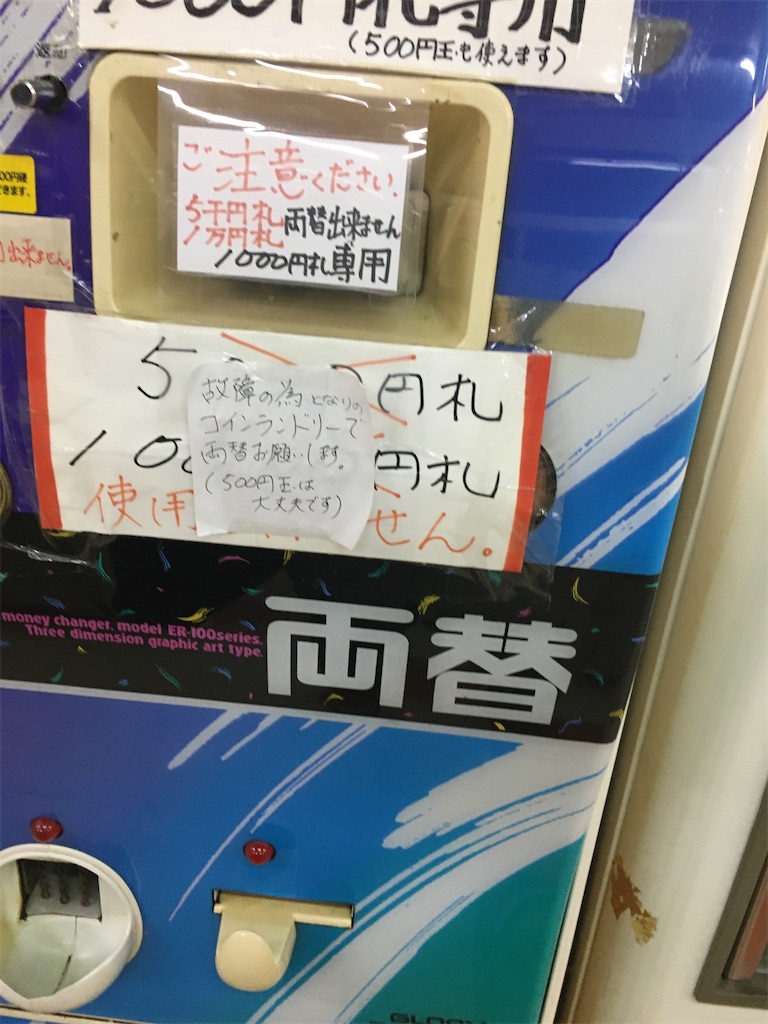 (500円玉も使えます)
ご注意ください.
5千円札
1万円札
両替出来ません
1000円札専用
出来ません。
円札
円札
故障の為となりの
コインランドリーで
両替お願いします。
(500円玉は
大丈夫です)
せん。
money changer. model ER-100series.
Three dimension graphic art type.
両替